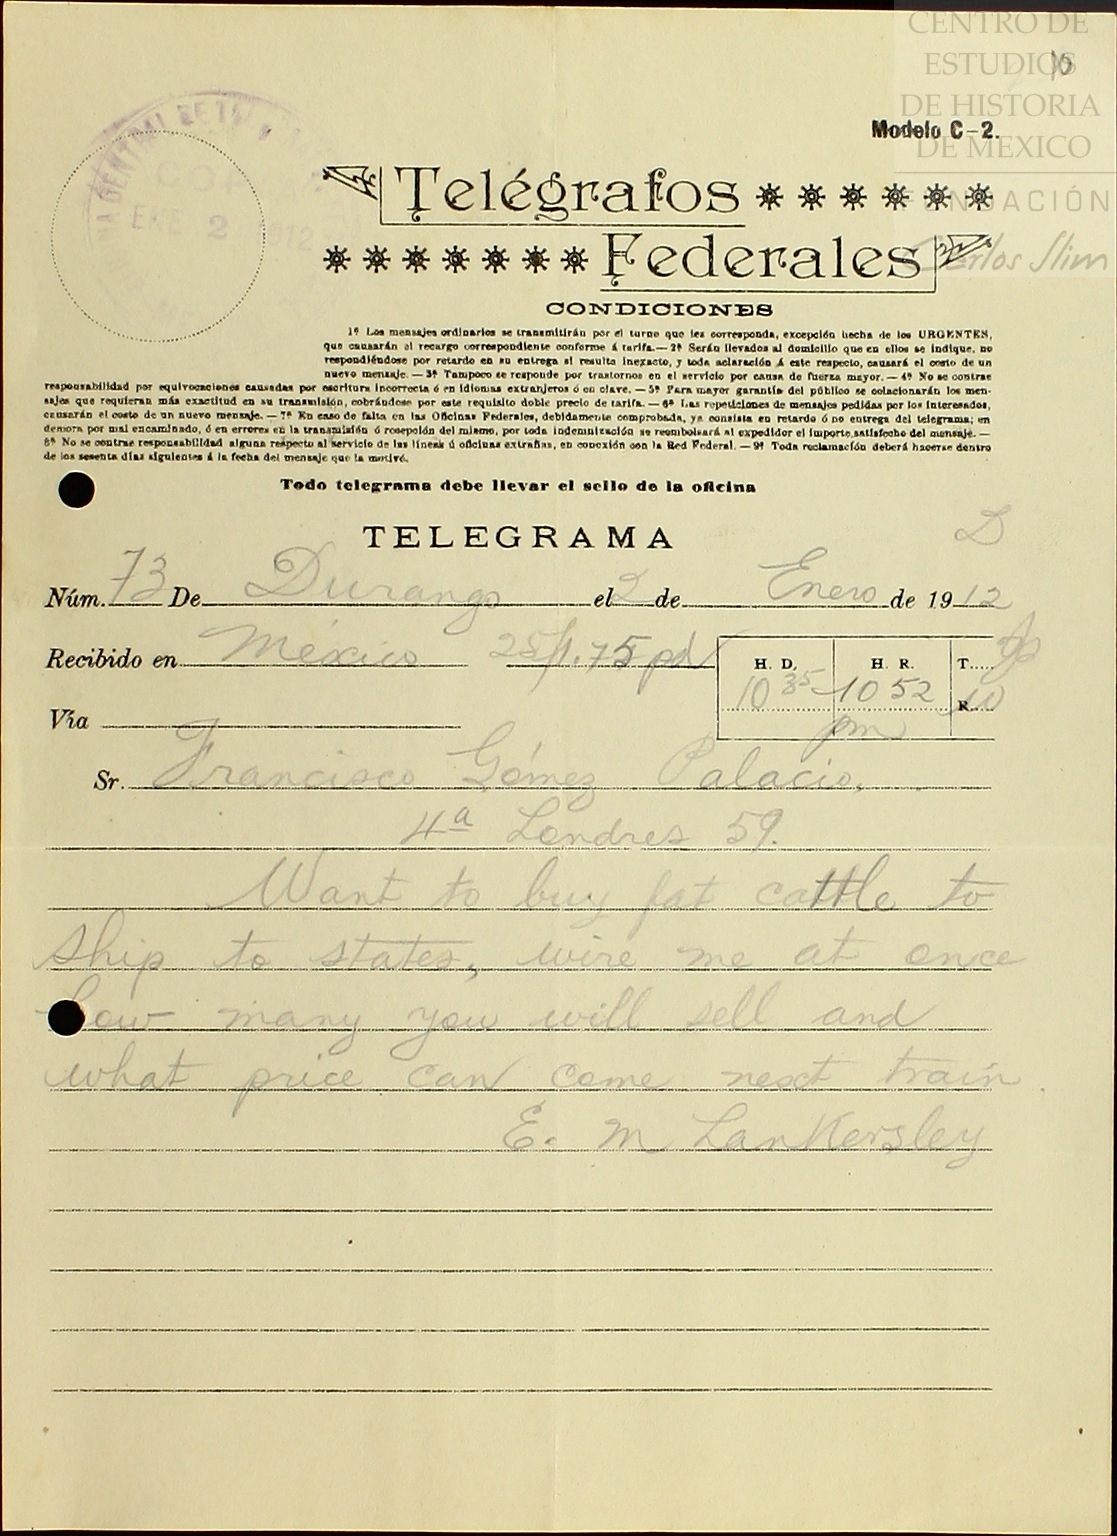 CENTRO DE
ESTUDIOS
DE HISTORIA
DE MEXICO
FUNDACIÓN
Carlos Slim
Modelo C-2.
ENE 2 1912
Telégrafos
Federales
CONDICIONES
1ª Los mensajes ordinarios se transmitirán por el turno que les corresponda, excepción hecha de los URGENTES,
que causarán el recargo correspondiente conforme á tarifa.— 2ª Serán llevados al domicilio que en ellos se indique, no
respondiéndose por retardo en su entrega si resulta inexacto, y toda aclaración á este respecto, causará el costo de un
nuevo mensaje.— 3ª Tampoco se responde por trastornos en el servicio por causa de fuerza mayor.— 4ª No se contrae
responsabilidad por equivocaciones causadas por escritura incorrecta ó en idiomas extranjeros ó en clave. — 5ª Para mayor garantía del público se colacionarán los men-
sajes que requieran más exactitud en su transmisión, cobrándose por este requisito doble precio de tarifa.— 6ª Las repeticiones de mensajes pedidas por los interesados,
causarán el costo de un nuevo mensaje. — 7ª En caso de falta en las Oficinas Federales, debidamente comprobada, ya consista en retardo ó no entrega del telegrama; en
demora por mal encaminado, ó en errores en la transmisión ó recepción del mismo, por toda indemnización se reembolsará al expedidor el importe satisfecho del mensaje. —
8ª No se contrae responsabilidad alguna respecto al servicio de las líneas ú oficinas extrañas, en conexión con la Red Federal. — 9ª Toda reclamación deberá hacerse dentro
de los sesenta días siguientes á la fecha del mensaje que la motivó.
Todo telegrama debe llevar el sello de la oficina
TELEGRAMA D
Núm. 73 De Durango el 2 de Enero de 1912
Recibido en México 25/1.75 pd
H. D. H. R. T.
10 35 10 52 R. 10
pm
Vía
Sr. Francisco Gómez Palacio.
4ª Londres 59.
Want to buy fat cattle to
ship to states, wire me at once
how many you will sell and
what price can come next train.
E. M Lankersley